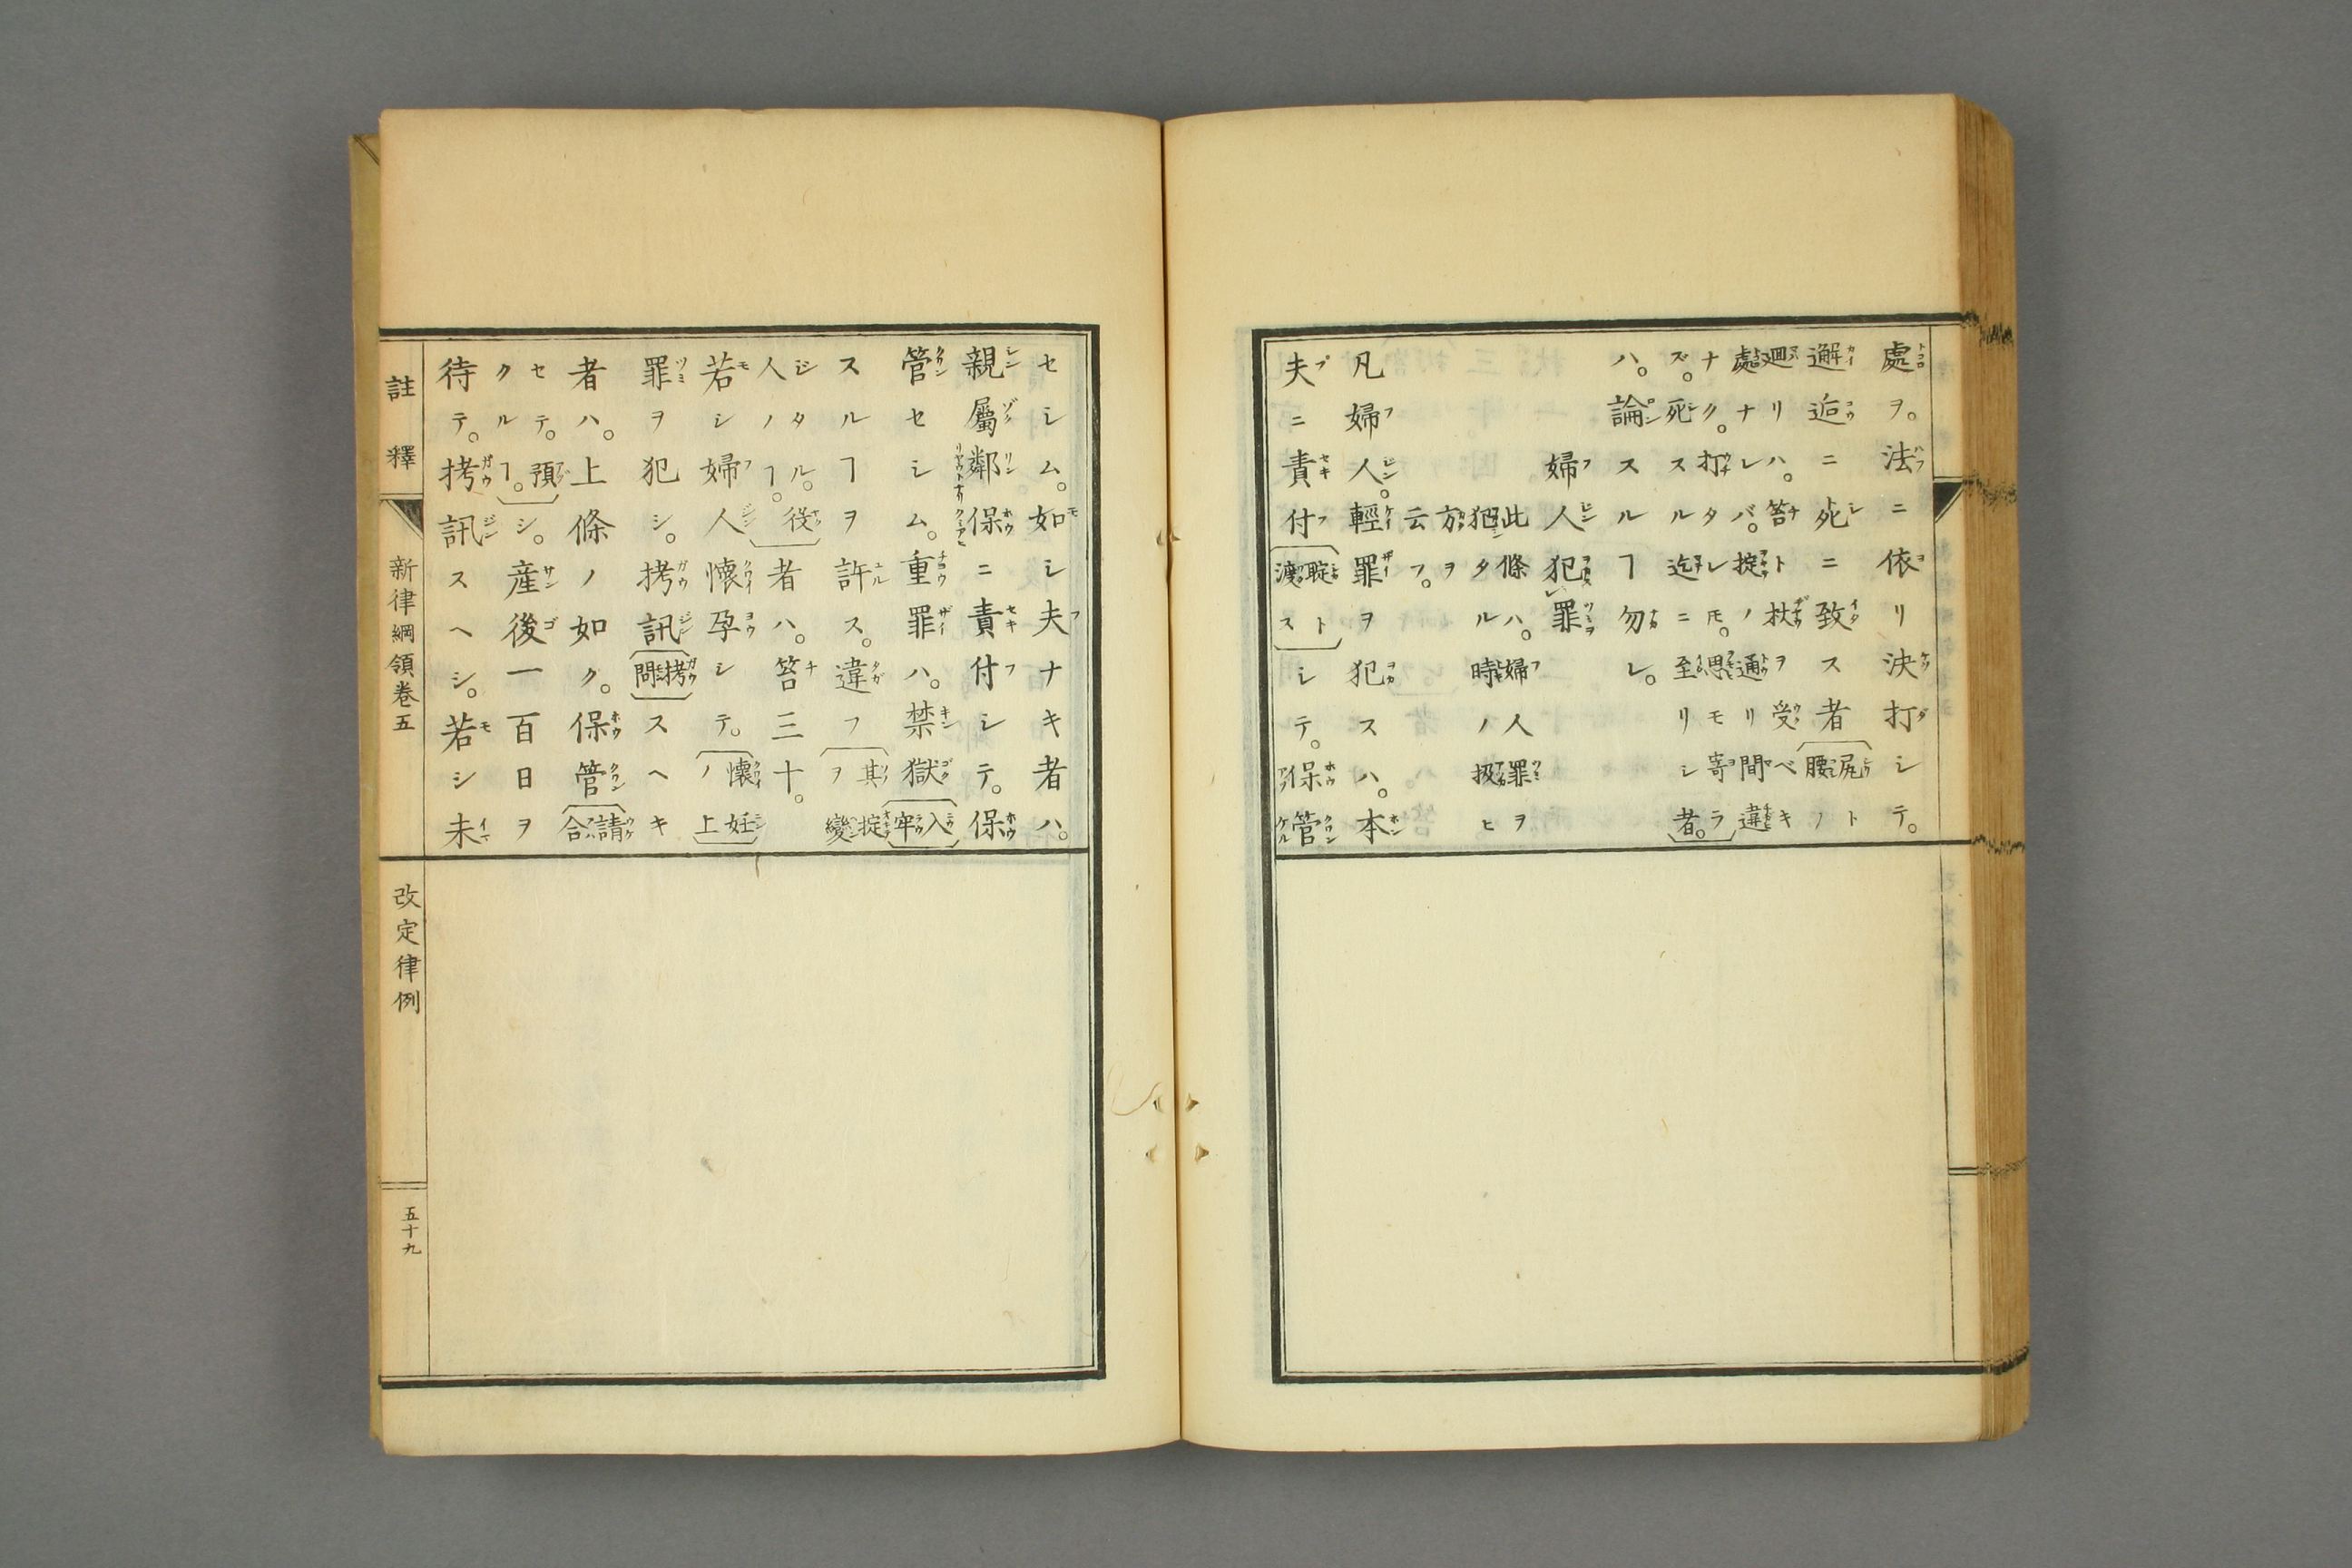 處ヲ。法ニ依リ決打シテ。
邂逅ニ死ニ致ス者
尻ト
腰ノ
廻リハ。笞ト杖ヲ受ベキ
處ナレバ。掟ノ通リ間違
ナク。打タレ𪜈。思モ寄ラ
ズ。死スル迄ニ至リシ者。
ハ。論スルヿ勿レ。
婦人犯罪
此條ハ。婦人罪ヲ
犯タル時ノ扱ヒ
方ヲ
云フ。
凡婦人。輕罪ヲ犯スハ。本
夫ニ責付
聢ト
渡ス
シテ。保管
セシム。如シ夫ナキ者ハ。
親屬鄰保ニ責付シテ。保
管セシム。重罪ハ。禁獄
入
牢
スルヿヲ許ス。違フ
其掟
ヲ變
ジタル。役
人ノヿ。
者ハ。笞三十。
若シ婦人懷孕シテ。
懷妊
ノ上
罪ヲ犯シ。拷訊
拷
問
スヘキ
者ハ。上條ノ如ク。保管
請
合
セテ。預
クルヿ。
シ。產後一百日ヲ
待テ。拷訊スヘシ。若シ未
註釋
新律綱領卷五
改定律例
五十九